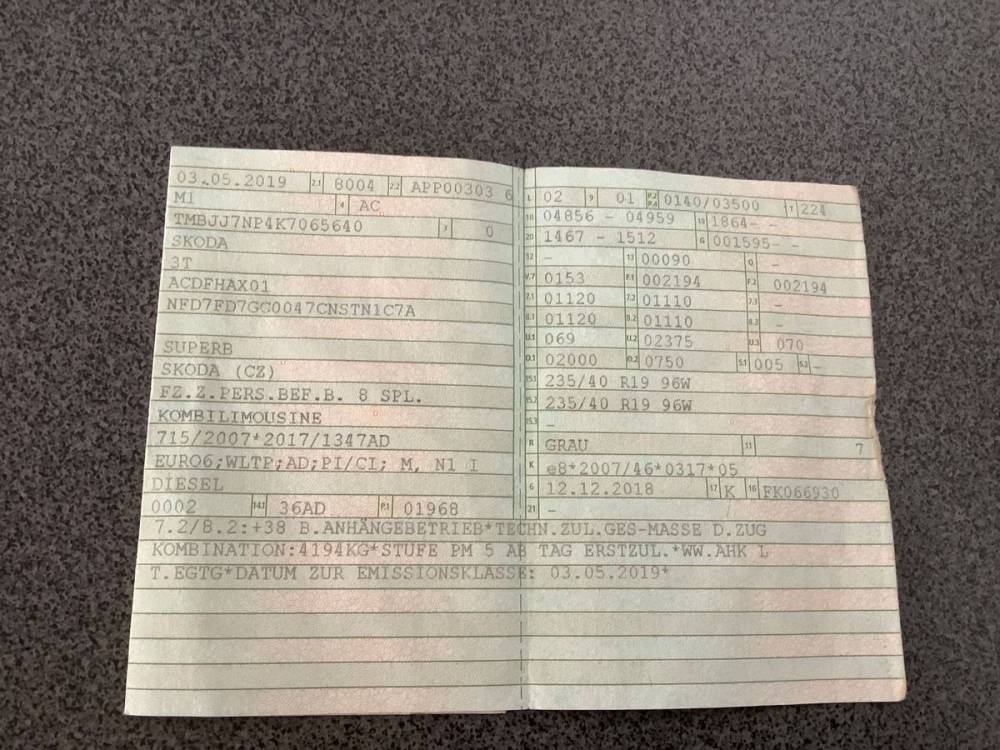 03.05.2019 2.1 8004 2.2 APP00303 6
M1 4 AC
TMBJJ7NP4K7065640 3 0
SKODA
3T
ACDFHAX01
NFD7FD7GC0047CNSTN1C7A
SUPERB
SKODA (CZ)
FZ.Z.PERS.BEF.B. 8 SPL.
KOMBILIMOUSINE
715/2007*2017/1347AD
EURO6;WLTP;AD;PI/CI; M, N1 I
DIESEL
0002 14.1 36AD P.1 01968
L 02 9 01 P.2 P.4 0140/03500 T 224
18 04856 - 04959 19 1864- -
20 1467 - 1512 G 001595- -
12 - 13 00090 Q -
V.7 0153 F.1 002194 F.2 002194
7.1 01120 7.2 01110 7.3 -
8.1 01120 8.2 01110 8.3 -
U.1 069 U.2 02375 U.3 070
O.1 02000 O.2 0750 S.1 005 S.2 -
15.1 235/40 R19 96W
15.2 235/40 R19 96W
15.3 -
R GRAU 11 7
K e8*2007/46*0317*05
6 12.12.2018 17 K 16 FK066930
21 -
7.2/8.2:+38 B.ANHÄNGEBETRIEB*TECHN.ZUL.GES-MASSE D.ZUG
KOMBINATION:4194KG*STUFE PM 5 AB TAG ERSTZUL.*WW.AHK L
T.EGTG*DATUM ZUR EMISSIONSKLASSE: 03.05.2019*